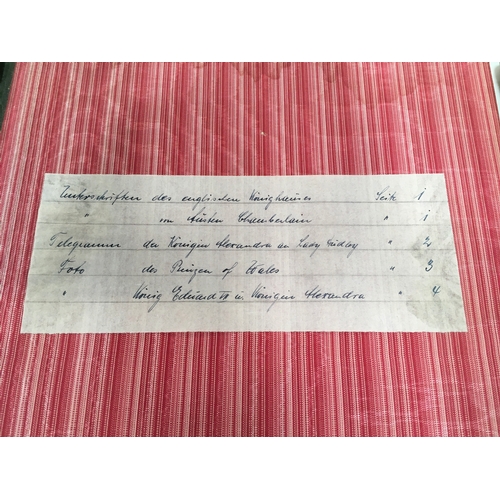 Unterschriften des englischen Königshauses Seite 1
" von Austen Chamberlain " 1
Telegramm der Königin Alexandra an Lady " 2
Foto des Prinzen of Wales " 3
" König Eduard VII u Königin Alexandra " 4